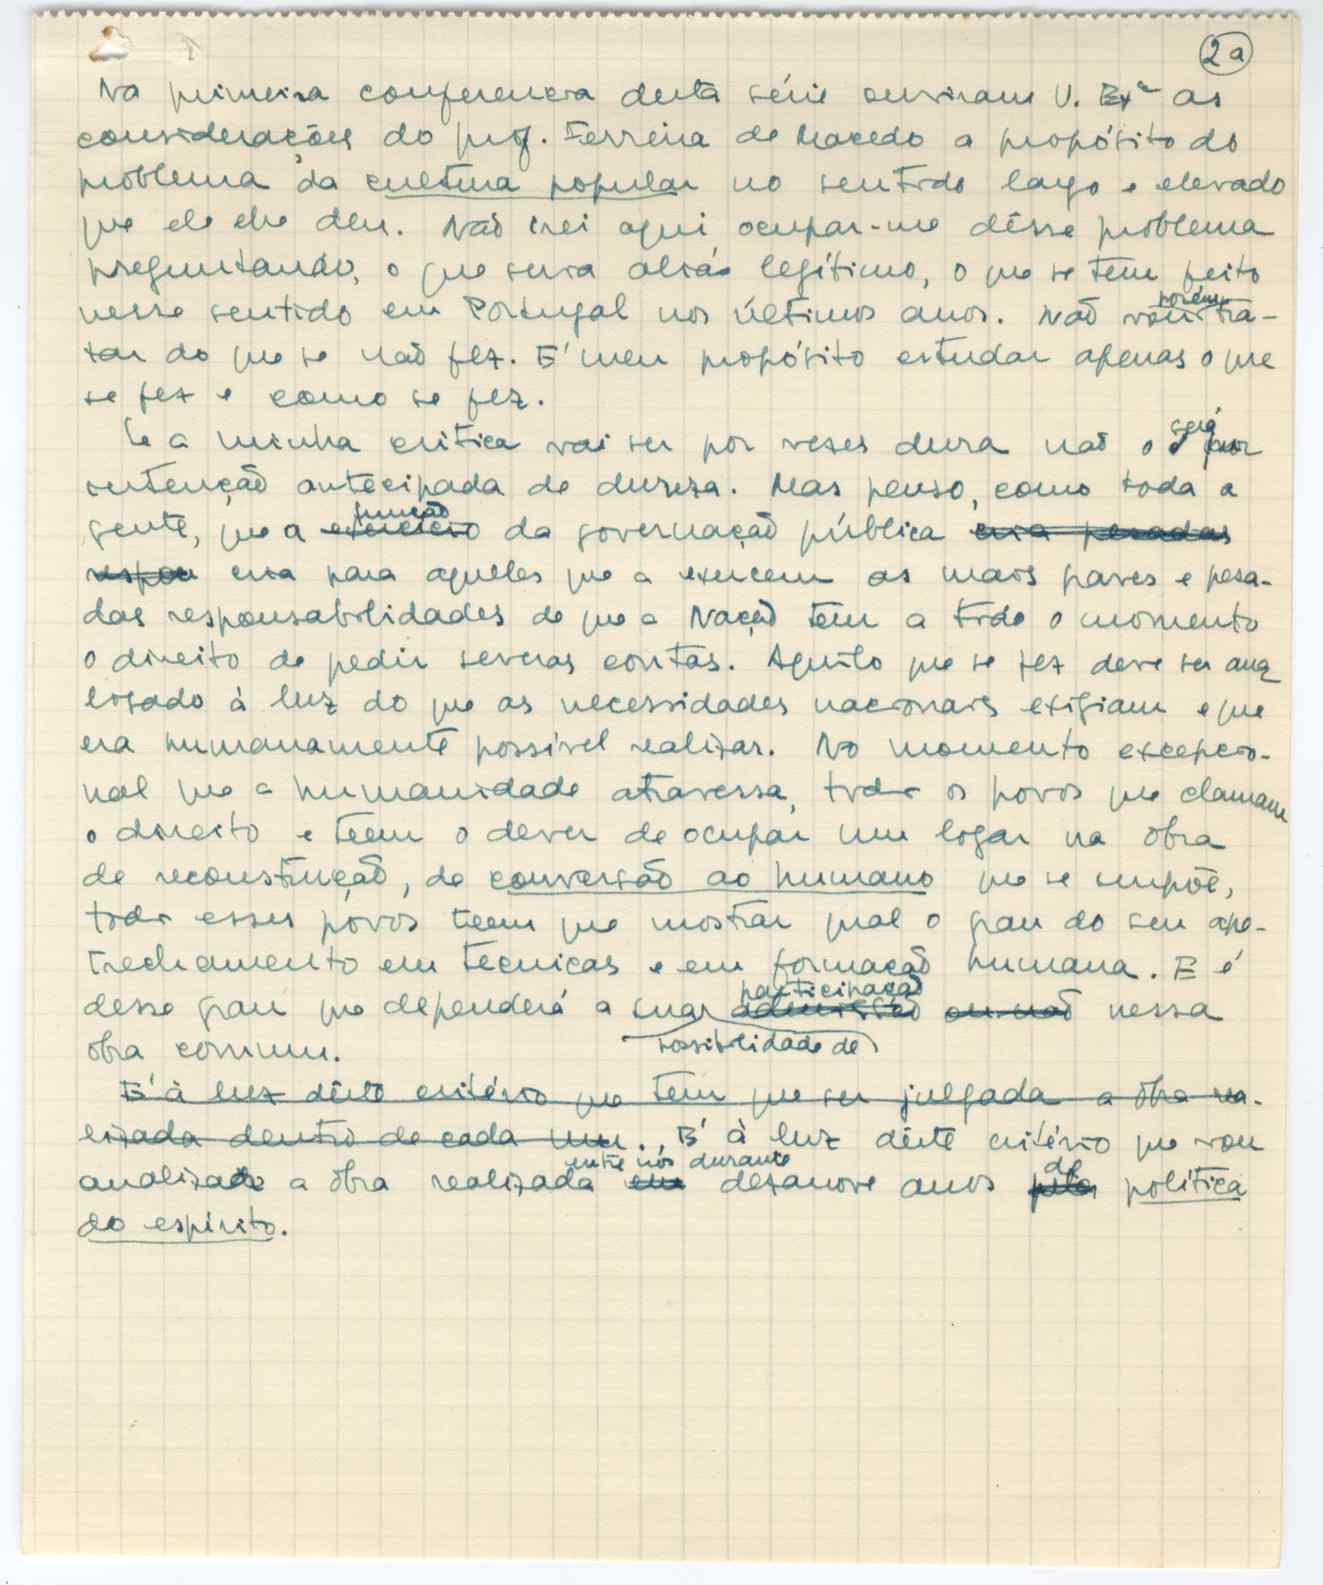 2a
Na primeira conferencia desta série ouviram V. Exª as
considerações do prof. Ferreira de Macedo a propósito do
problema da cultura popular no sentido largo e elevado
que ele lhe deu. Não irei aqui ocupar-me dêsse problema
preguntando, o que seria aliás legítimo, o que se tem feito
nesse sentido em Portugal nos últimos anos. Não vou porém tra-
tar do que se não fez. E' meu propósito estudar apenas o que
se fez e como se fez.
Se a minha critica vai ser por vezes dura não o será por
intenção antecipada de dureza. Mas penso, como toda a
gente, que a exercicio função da governação pública cria pesadas
respon cria para aqueles que a exercem as mais graves e pesa-
das responsabilidades de que a Nação tem a todo o momento
o direito de pedir severas contas. Aquilo que se fez deve ser ana
lisado à luz do que as necessidades nacionais exigiam e que
era humanamente possível realizar. No momento excepcio-
nal que a humanidade atravessa, todos os povos que clamam
o direito e teem o dever de ocupar um logar na obra
de reconstrução, de conversão ao humano que se impõe,
todos esses povos teem que mostrar qual o grau do seu ape-
trechamento em técnicas e em formação humana. E é
desse grau que dependerá a sua admissão participação ou não nessa
possibilidade de
obra comum.
E' à luz dêste critério que tem que ser julgada a obra rea-
lizada dentro de cada um. E' à luz dêste critério que vou
analizar a obra realizada em entre nós durante dezanove anos pela de política
do espírito.